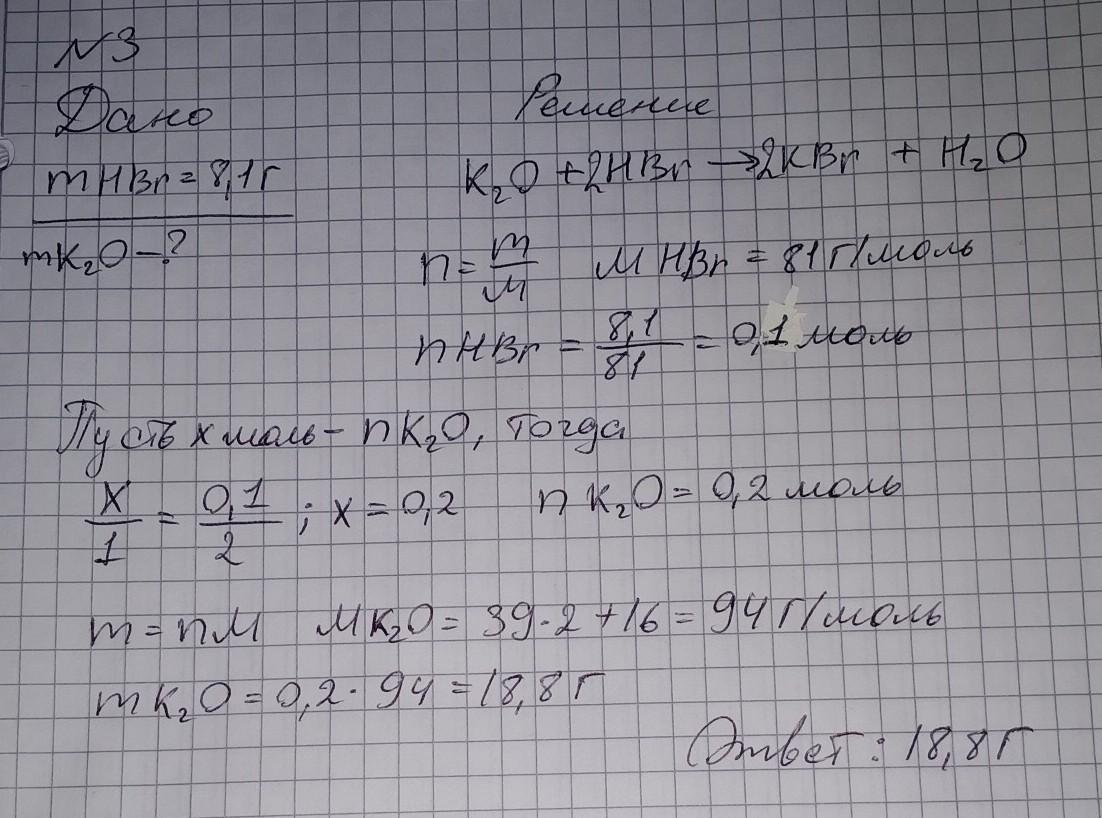 N3
Дано
Решение
mHBr = 8,1г
K₂O + 2HBr → 2KBr + H₂O
mK₂O - ?
n = m/M   M HBr = 81 г/моль
nHBr = 8,1/81 = 0,1 моль
Пусть x моль - nK₂O, тогда
x/1 = 0,1/2 ; x = 0,2   n K₂O = 0,2 моль
m = nM   MK₂O = 39·2 + 16 = 94 г/моль
mK₂O = 0,2 · 94 = 18,8 г
Ответ: 18,8 г